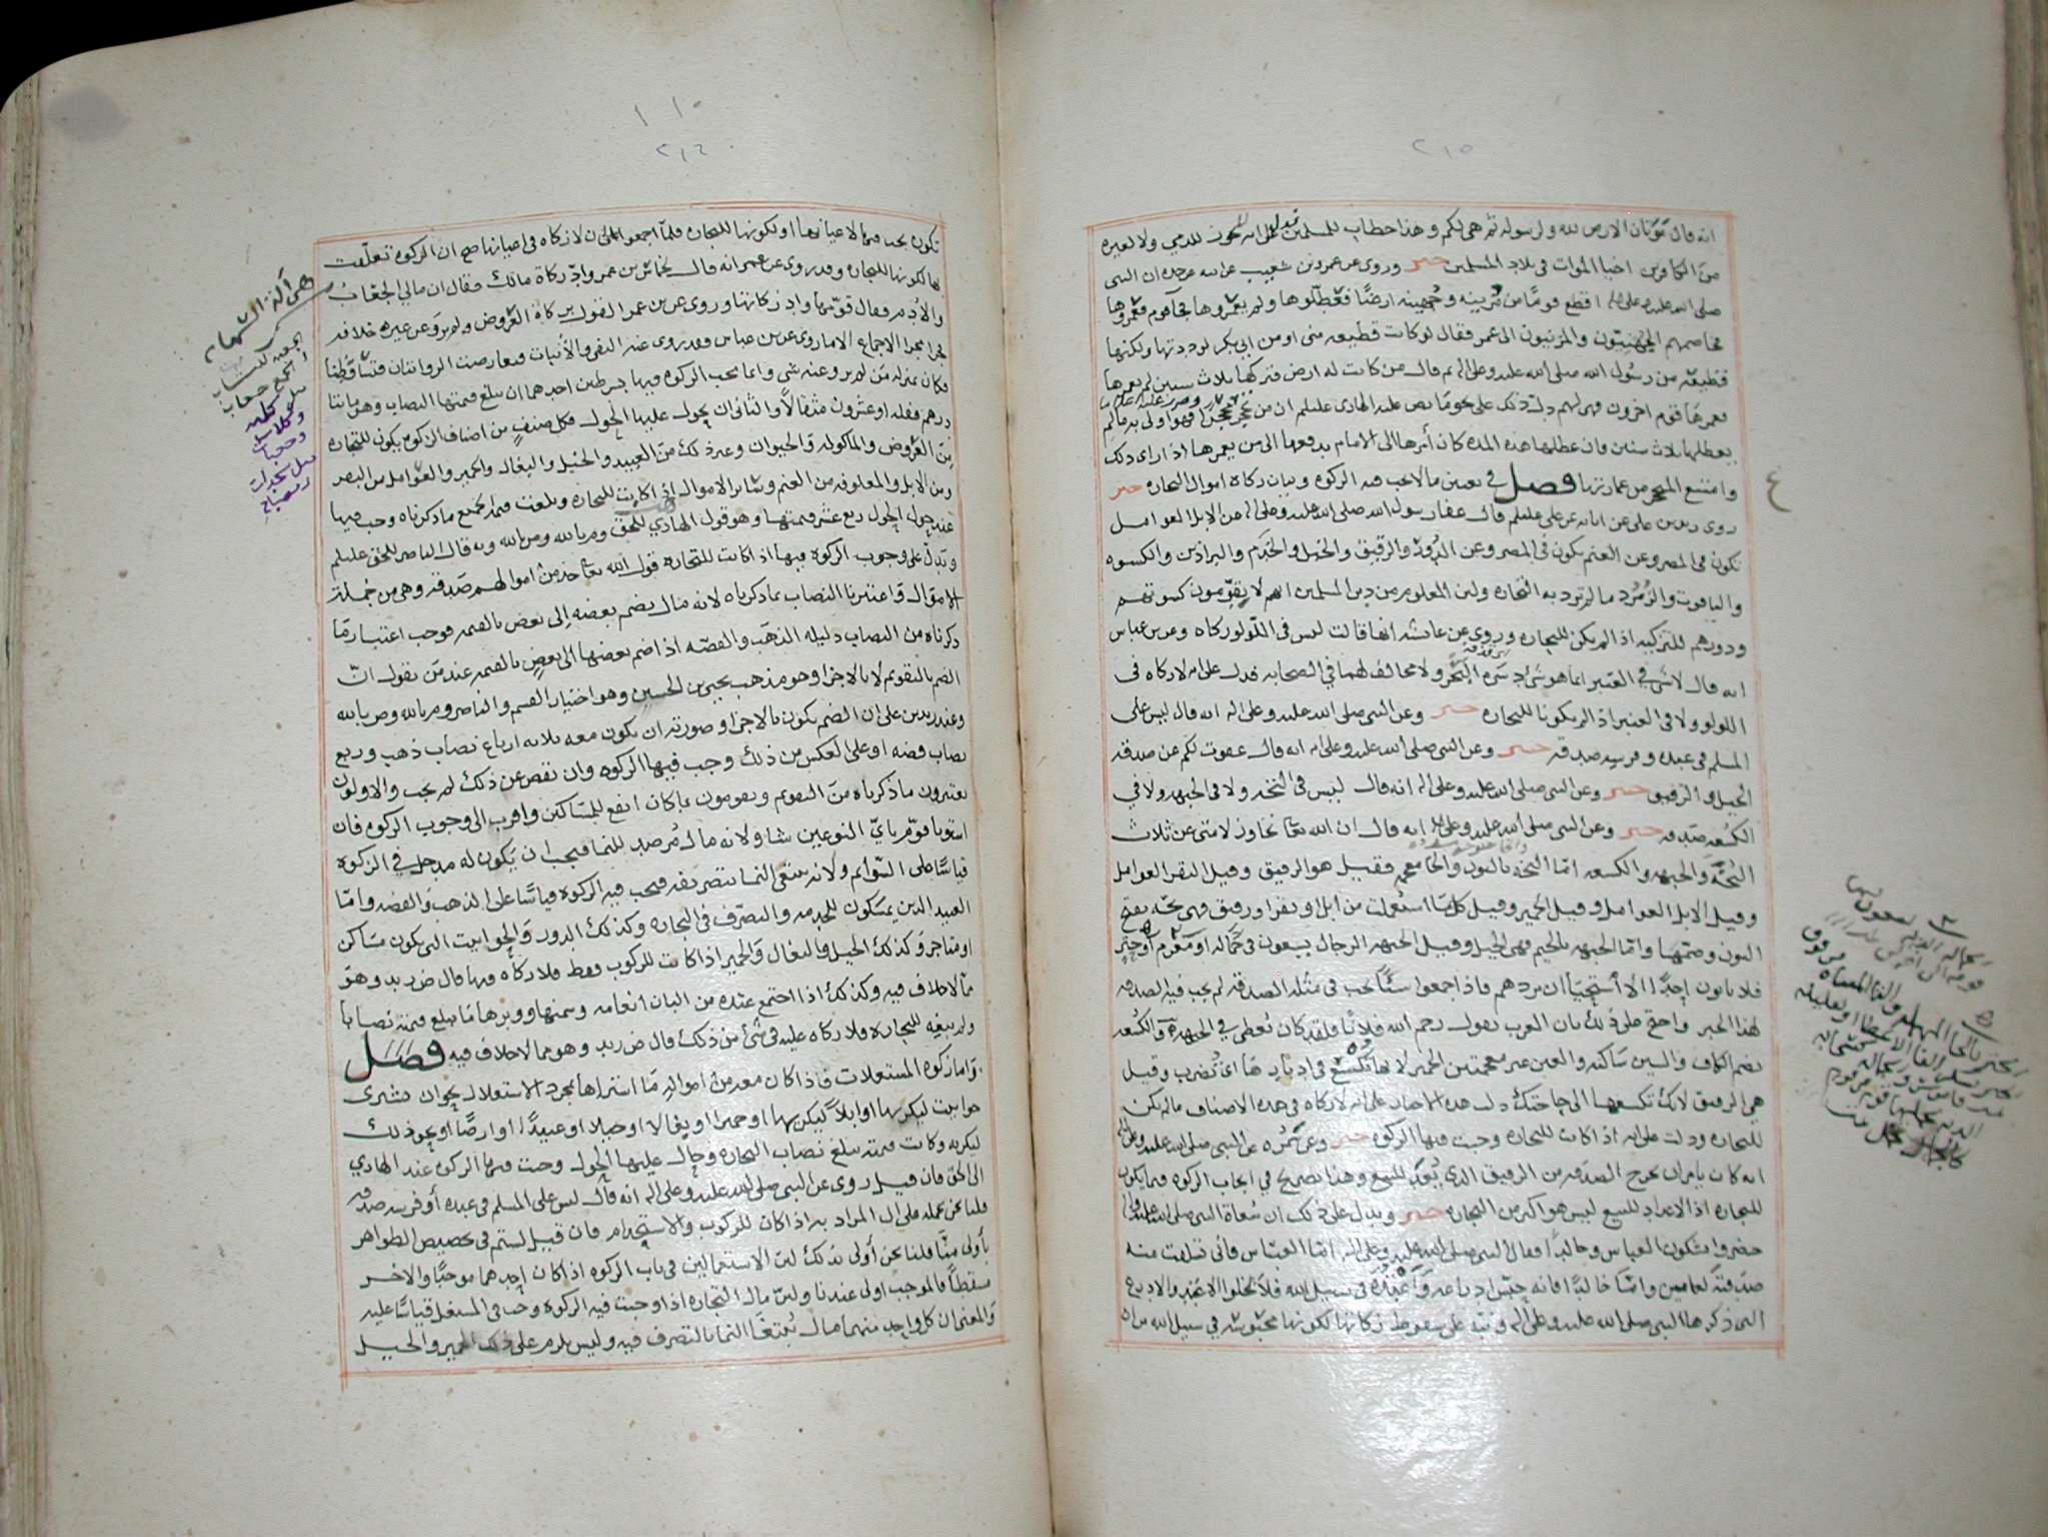 ٢١٥
انه قال موتان الارض لله ولرسوله ثم هي لكم وهذا خطاب للمسلمين فدل على انه لا يجوز للذمي ولا لغيره
من الكافرين احيا الموات في بلاد المسلمين خبر وروي عن عمرو بن شعيب عن ابيه عن جده ان النبي
صلى الله عليه وعلى اله اقطع قوما من مزينه وجهينه ارضا فعطلوها ولم يعمروها فجا قوم فعمروها
فخاصمهم الجهنيون والمزنيون الى عمر فقال لو كانت قطيعه مني او من ابي بكر لرددتها ولكنها
قطيعة من رسول الله صلى الله عليه وعلى اله ثم قال من كانت له ارض فتركها ثلاث سنين لم يعمرها
فعمرها قوم اخرون فهي لهم دلت ذلك على نحو ما نص عليه الهادي عليلم ان من تحجر محجرا فهو اولى به ما لم
يعطلها ثلاث سنين فان عطلها هذه المده كان امرها الى الامام يدفعها الى من يعمرها اذا راى ذلك
وامتنع المتحجر من عمارتها فصل في تعيين ما لا تجب فيه الزكوه وبيان زكاة اموال التجاره خبر
روى زيد بن علي عن ابايه عن علي عليلم قال عفا رسول الله صلى الله عليه وعلى اله عن الابل العوامل
تكون في المصر وعن الغنم تكون في المصر وعن الدور والرقيق والخيل والخدم والبراذين والكسوه
والياقوت والزمرد ما لم ترد به التجاره ولان المعلوم من دين المسلمين انهم لا يقومون كسوتهم
ودورهم للتزكيه اذا لم يكن للتجاره وروي عن عائشه انها قالت ليس في اللولو زكاه وعن بن عباس
انه قال لا شي في العنبر انما هو شي دسره البحر ولا مخالف لهما في الصحابه فدل على انه لا زكاه في
اللولو ولا في العنبر اذا لم يكونا للتجاره خبر وعن النبي صلى الله عليه وعلى اله انه قال ليس على
المسلم في عبده وفرسه صدقه خبر وعن النبي صلى الله عليه وعلى اله انه قال عفوت لكم عن صدقه
الخيل والرقيق خبر وعن النبي صلى الله عليه وعلى اله انه قال ليس في النخه ولا في الجبهه ولا في
الكسعه صدقه خبر وعن النبي صلى الله عليه وعلى اله انه قال ان الله تعا تجاوز لامتي عن ثلاث
النخه والجبهه والكسعه اما النخه بالنون والخا معجمه فقيل هو الرقيق وقيل البقر العوامل
وقيل الابل العوامل وقيل الحمير وقيل كل ما استعملت من ابل او بقر او رقيق فهي نخه بفتح
النون وضمها واما الجبهه بالجيم فهي الخيل وقيل الجبهه الرجال يسعون في حماله او مغرم او خير
فلا ياتون احدا الا استحيا ان يردهم فاذا جمعوا شيا تجب في مثله الصدقه لم يجب فيه الصدقه
لهذا الخبر واحتج على ذلك بان العرب تقول رحم الله فلانا فلقد كان يعطي في الجبهة والكسعه
بضم الكاف والسين ساكنه والعين غير معجمتين الحمير لانها تكسع في ادبارها اي تضرب وقيل
هي الرقيق لانك تكسعها الى حاجتك دلت هذه الاخبار على انه لا زكاه في هذه الاصناف ما لم تكن
للتجاره ودلت على انه اذا كانت للتجاره وجبت فيها الزكوه خبر وعن سمره عن النبي صلى الله عليه وعلى اله
انه كان يامر ان نخرج الصدقه من الرقيق الذي يعد للبيع وهذا تصريح في ايجاب الزكوه فيما يكون
للتجاره اذ الاعداد للبيع ليس هو اكثر من التجاره خبر ويدل على ذلك ان سعاة النبي صلى الله عليه وعلى اله
حضروا يشكون العباس وخالدا فقال النبي صلى الله عليه وعلى اله اما العباس فاني تسلفت منه
صدقة لعامين واما خالدا فانه حبس ادراعه واعتده في سبيل الله فلا تخلوا الاعتد والادرع
التي ذكرها النبي صلى الله عليه وعلى اله ونبه على سقوط زكاتها لكونها محبوسه في سبيل الله من ان
٢١٤
تكون يجب فيها لاعيانها او لكونها للتجاره فلما اجمعوا على ان لا زكاه في اعيانها صح ان الزكوه تعلقت
بها لكونها للتجاره وقد روي عن عمر انه قال لحماس بن عمرو اد زكاة مالك فقال ان مالي الجعاب
والادم فقال قومها واد زكاتها وروي عن بن عمر القول بزكاة العروض ولم يرو عن غيره خلافه
فجرا مجرا الاجماع الا ما روي عن بن عباس وقد روي عنه النفي والاثبات فتعارضت الروايتان فتساقطتا
فكان بمنزله من لم يرو عنه شي وانما تجب الزكوه فيها بشرطين احدهما ان تبلغ قيمتها النصاب وهو مائتا
درهم فضه او عشرون مثقالا والثاني ان يحول عليها الحول فكل صنف من اصناف الزكوه يكون للتجاره
من العروض والماكوله والحيوان وغير ذلك من العبيد والخيل والبغال والحمير والعوامل من البقر
ومن الابل والمعلوفه من الغنم وسائر الاموال اذا كانت للتجاره وبلغت قيمه الجميع ما ذكرناه وجب فيها
عند حول الحول ربع عشر قيمتها وهو قول الهادي للحق ومربالله ومن بالله وبه قال الناصر للحق عليلم
ويدل على وجوب الزكوه فيها اذا كانت للتجاره قول الله تعا خذ من اموالهم صدقه وهي من جملة
الاموال واعتبرنا النصاب بما ذكرناه لانه مال يضم بعضه الى بعض بالقيمه فوجب اعتبار ما
ذكرناه من النصاب دليله الذهب والفضه اذا ضم بعضها الى بعض بالقيمه عند من يقول ان
الضم بالتقويم لا بالاجزا وهو مذهب يحيى بن الحسين وهو اختيار القسم والناصر ومربالله ومن بالله
وعند زيد بن علي ان الضم يكون بالاجزا وصورته ان يكون معه ثلاثه ارباع نصاب ذهب وربع
نصاب فضه او على العكس من ذلك وجب فيها الزكوه وان نقص عن ذلك لم يجب والاولون
يعتبرون ما ذكرناه من التقويم ويقومون بما كان انفع للمساكين واقرب الى وجوب الزكوه فان
استويا قوم باي النوعين شا ولانه مال مرصد للنما فيجب ان يكون له مدخل في الزكوه
قياسا على السوائم ولانه يبتغى النما بتصريفه فيجب فيه الزكوه قياسا على الذهب والفضه واما
العبيد الذين يمسكون للخدمه والتصرف في التجاره وكذلك الدور والحوانيت التي تكون مساكن
او متاجر وكذلك الخيل والبغال والحمير اذا كانت للركوب فقط فلا زكاه فيها قال ض زيد وهو
مما لا خلاف فيه وكذلك اذا اجتمع عنده من البان انعامه وسمنها ووبرها ما يبلغ قيمته نصابا
ولم يبغه للتجاره فلا زكاه عليه في شي من ذلك قال ض زيد وهو مما لا خلاف فيه فصل
واما زكوه المستغلات فاذا كان معه من اموالهم ما اشتراها بمجرد الاستغلال نحو ان يشتري
حوانيت ليكريها او ابلا ليكريها او حميرا او بغالا او خيلا او عبيدا او ارضا او نحو ذلك
ليكريه وكانت قيمته تبلغ نصاب التجاره وحال عليها الحول وجبت فيها الزكوه عند الهادي
الى الحق فان قيل روي عن النبي صلى الله عليه وعلى اله انه قال ليس على المسلم في عبده او فرسه صدقه
قلنا نحن نحمله على ان المراد به اذا كان للركوب والاستخدام فان قيل لستم في تخصيص الظواهر
باولى منا قلنا نحن اولى بذلك لان الاستعمالين في باب الزكوه اذا كان احدهما موجبا والاخر
مسقطا فالموجب اولى عندنا ولان مال التجاره اذا وجبت فيه الزكوه وجب في المستغل قياسا عليه
والمعنى ان كل واحد منهما مال يبتغا النما بالتصرف فيه وليس يلزم على ذلك الحمير والخيل
هي آلة السهام